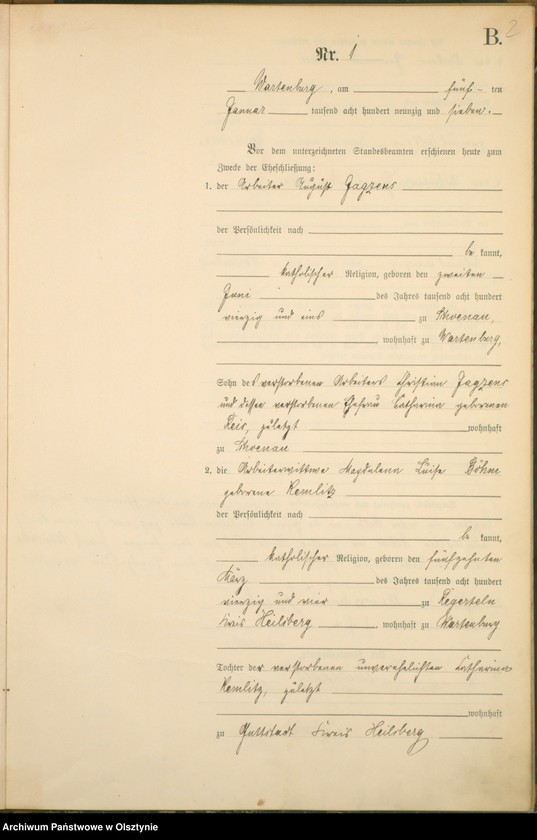 B. 2
Nr. 1
Wartenburg, am fünf-ten
Januar tausend acht hundert neunzig und sieben.
Vor dem unterzeichneten Standesbeamten erschienen heute zum
Zwecke der Eheschließung:
1. der Arbeiter August
der Persönlichkeit nach
be kannt,
katholischer Religion, geboren den zweiten
Juni des Jahres tausend acht hundert
vierzig und eins zu Schoenau,
wohnhaft zu Wartenburg,
Sohn des verstorbenen Arbeiters Christian
und dessen verstorbenen Ehefrau Catharina geborenen
Reis, zuletzt wohnhaft
zu Schoenau
2. die Arbeiterwittwe Magdalena Luise Böhm
geborene Kemlitz
der Persönlichkeit nach
be kannt,
katholischer Religion, geboren den fünfzehnten
März des Jahres tausend acht hundert
vierzig und vier zu Regerteln
Kreis Heilsberg, wohnhaft zu Wartenburg
Tochter der verstorbenen unverehelichten Catharina
Kemlitz, zuletzt
wohnhaft
zu Guttstadt Kreis Heilsberg
Archiwum Państwowe w Olsztynie